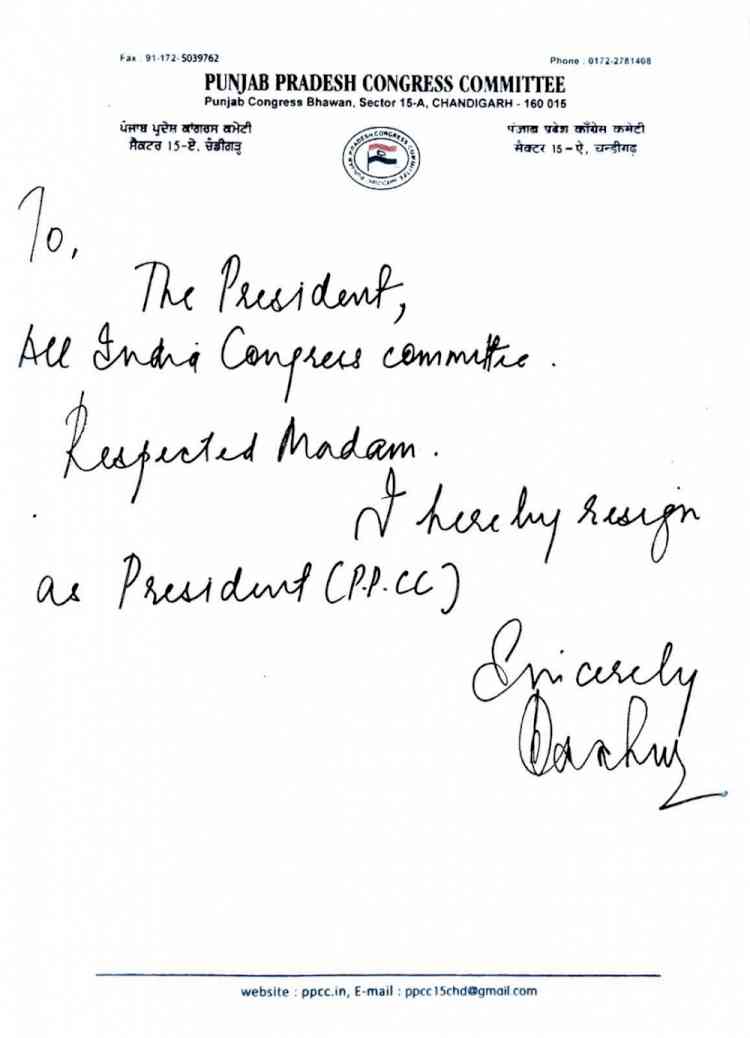 Fax : 91-172-5039762
Phone : 0172-2781408
PUNJAB PRADESH CONGRESS COMMITTEE
Punjab Congress Bhawan, Sector 15-A, CHANDIGARH - 160 015
ਪੰਜਾਬ ਪ੍ਰਦੇਸ਼ ਕਾਂਗਰਸ ਕਮੇਟੀ
ਸੈਕਟਰ 15-ਏ, ਚੰਡੀਗੜ੍ਹ
पंजाब प्रदेश काँग्रेस कमेटी
सैक्टर 15-ऐ, चन्डीगढ़
PUNJAB PRADESH CONGRESS COMMITTEE
To,
The President,
All India Congress committee.
Respected Madam.
I hereby resign
as President (P.P.CC)
Sincerely
website : ppcc.in, E-mail : ppcc15chd@gmail.com